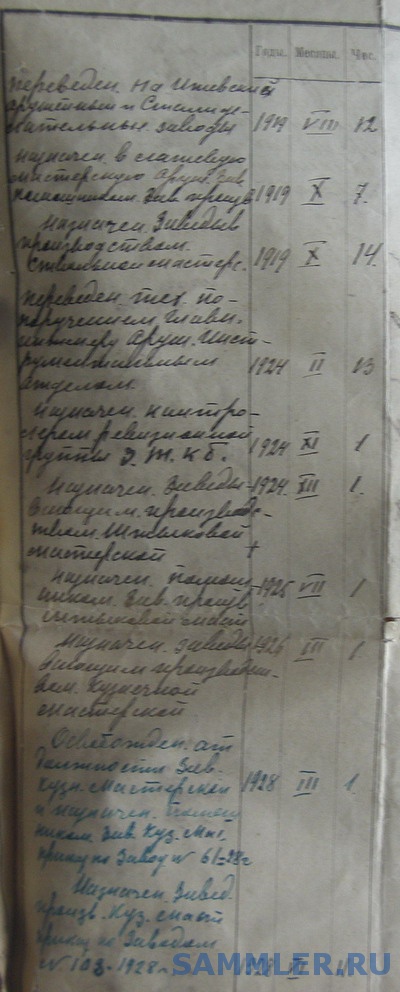 Годы. Месяцы. Чис.
переведен. на Ижевский
оружейный и Сталеде-
лательные. заводы 1919 VIII 12
назначен. в
мастерскую Оруж. Зав.
помощником. Зав. произв. 1919 X 7.
назначен. Заведыв
производством.
ствольной мастерс. 1919 X 14.
переведен. тех. по-
поручением Главн.
инженера Оруж. Инст-
рументальным
отделом. 1924 II 13
назначен. контро-
лером ревизионной
группы Э. Т. К. Б. 1924 XI 1
назначен. Заведы- 1924. XII 1.
вающим. производс-
твом. Штыковой
мастерской
назначен. помощ
ником. Зав. произв. 1925 VII 1
штыковой
назначен. заведы 1926 III 1
вающим производст-
вом. Кузнечной
мастерской
Освобожден. от
должности Зав.
Кузн. мастерской 1928 III 1.
и назначен. помощ
ником Зав. Куз. Маст.
приказ по Заводу № 61-28г
Назначен. Завед.
произв. Куз. маст
приказ по Заводам
№ 103-1928г.
SAMMLER.RU